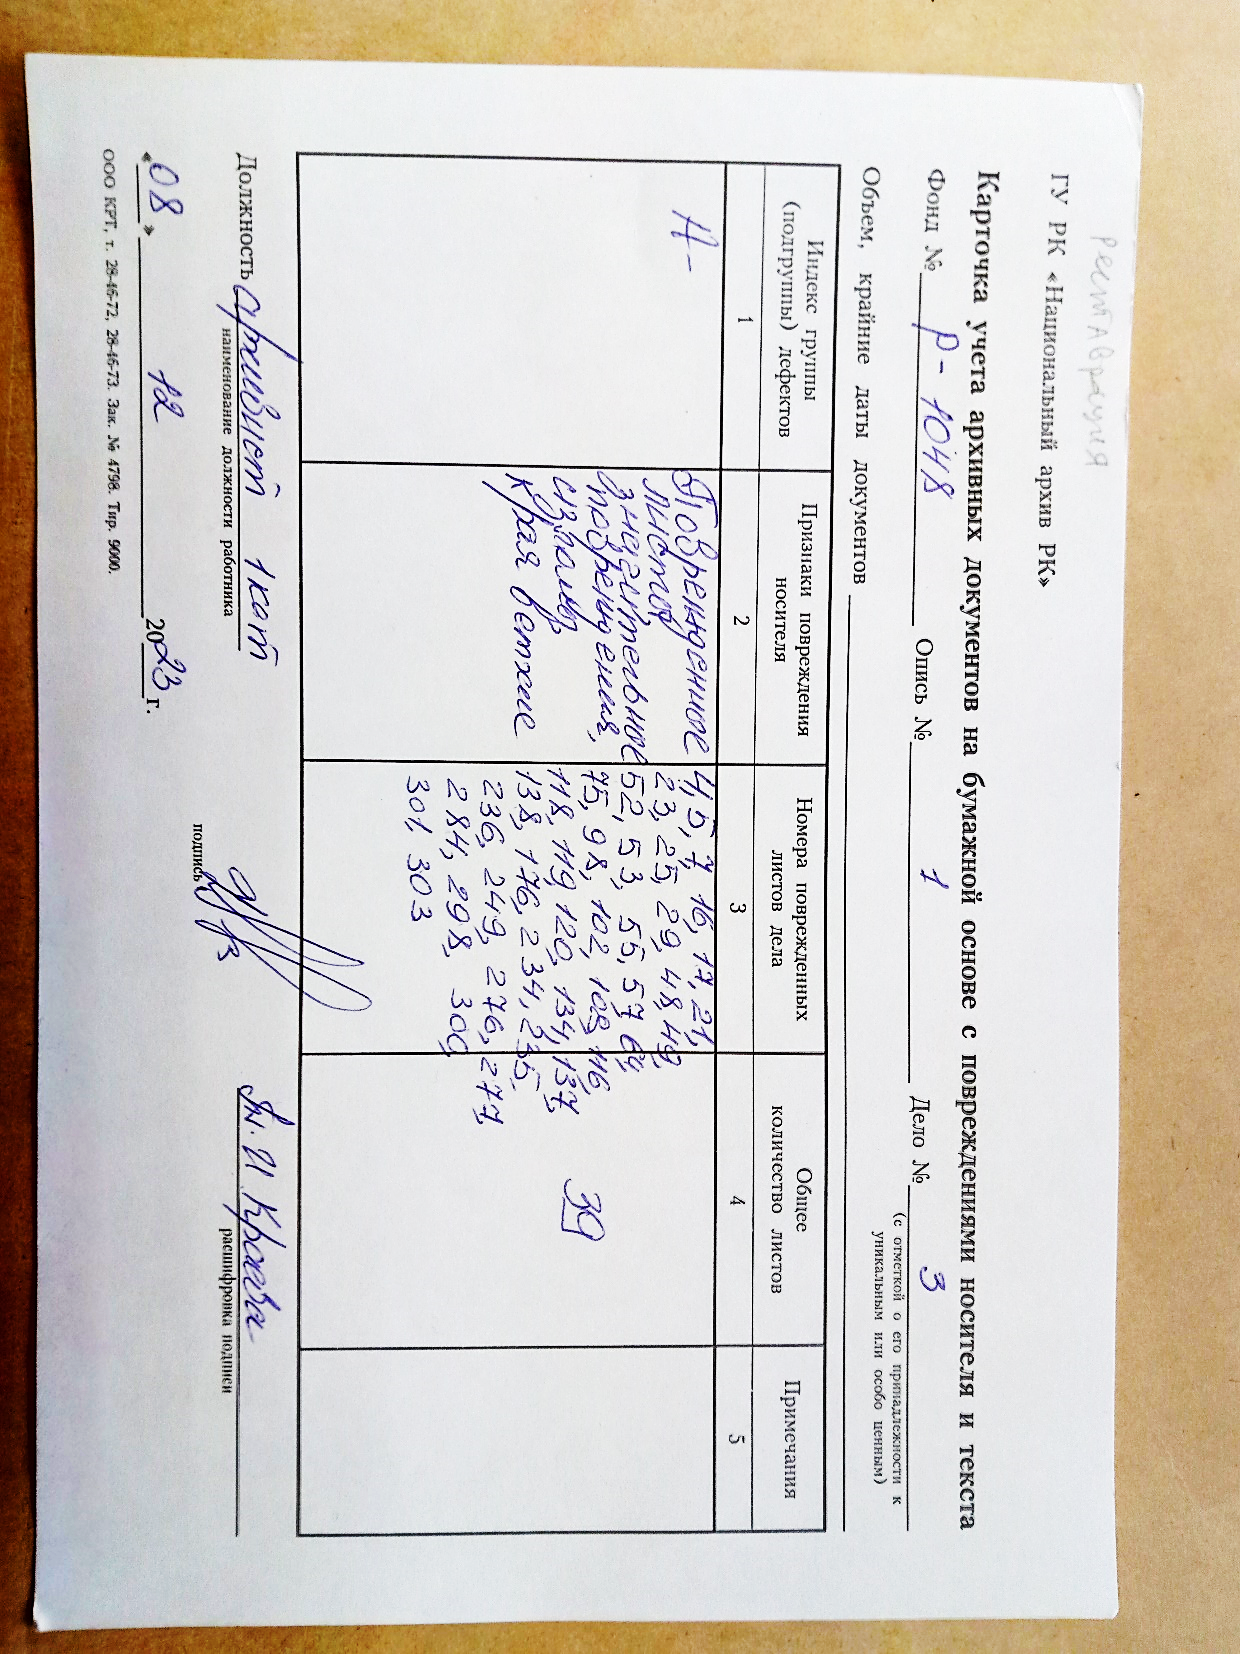 реставрация
ГУ РК «Национальный архив РК»
Карточка учета архивных документов на бумажной основе с повреждениями носителя и текста
Фонд № Р-1048 Опись № 1 Дело № 3
(с отметкой о его принадлежности к
уникальным или особо ценным)
Объем, крайние даты документов
Индекс группы (подгруппы) дефектов
Признаки повреждения носителя
Номера поврежденных листов дела
Общее количество листов
Примечания
1 2 3 4 5
Н-
Поврежденные
листов
значительные
повреждения,
изломы
края ветхие
4, 5, 7, 16, 17, 21,
23, 25, 29, 48, 49,
52, 53, 55, 57, 64,
75, 98, 102, 109, 116,
118, 119, 120, 134, 137,
138, 176, 234, 235,
236, 249, 276, 277,
284, 298, 300,
301, 303
39
Должность архивист 1 кат
наименование должности работника
подпись
расшифровка подписи
«08» 12 2023 г.
ООО КРТ, т. 28-46-72, 28-46-73. Зак. № 4798. Тир. 9000.